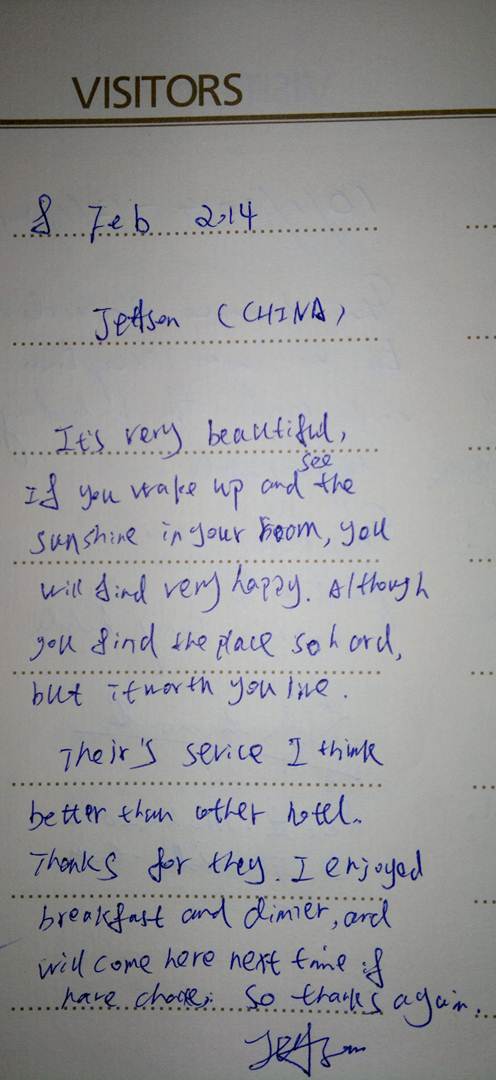 VISITORS
8 Feb 2014
Jeffson (CHINA)
It's very beautiful,
see
If you wake up and the
sunshine in your room, you
will find very happy. Although
you find the place so hard,
but it worth you live.
Their's service I think
better than other hotel.
Thanks for they. I enjoyed
breakfast and dinner, and
will come here next time if
have choose. So thanks again.